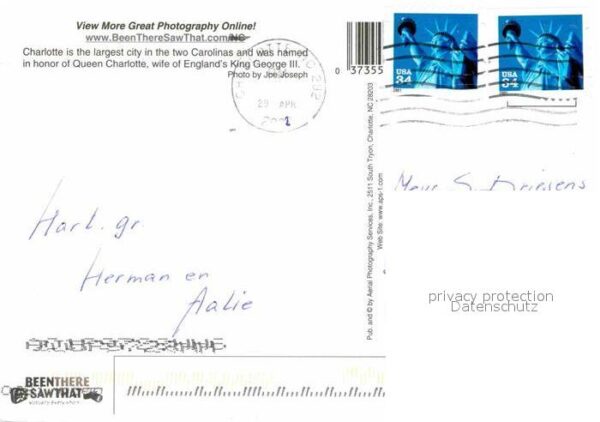 View More Great Photography Online!
www.BeenThereSawThat.com/NC
Charlotte is the largest city in the two Carolinas and was named
in honor of Queen Charlotte, wife of England's King George III.
Photo by Joe Joseph
CHARLOTTE NC 282
29 APR
2002
0 37355
USA
34
USA
34
Pub. and © by Aerial Photography Services, Inc., 2511 South Tryon, Charlotte, NC 28203
Web Site: www.aps-1.com
Hart. gr.
Herman en
Aalie
Driesens
privacy protection
Datenschutz
BEENTHERE
SAWTHAT